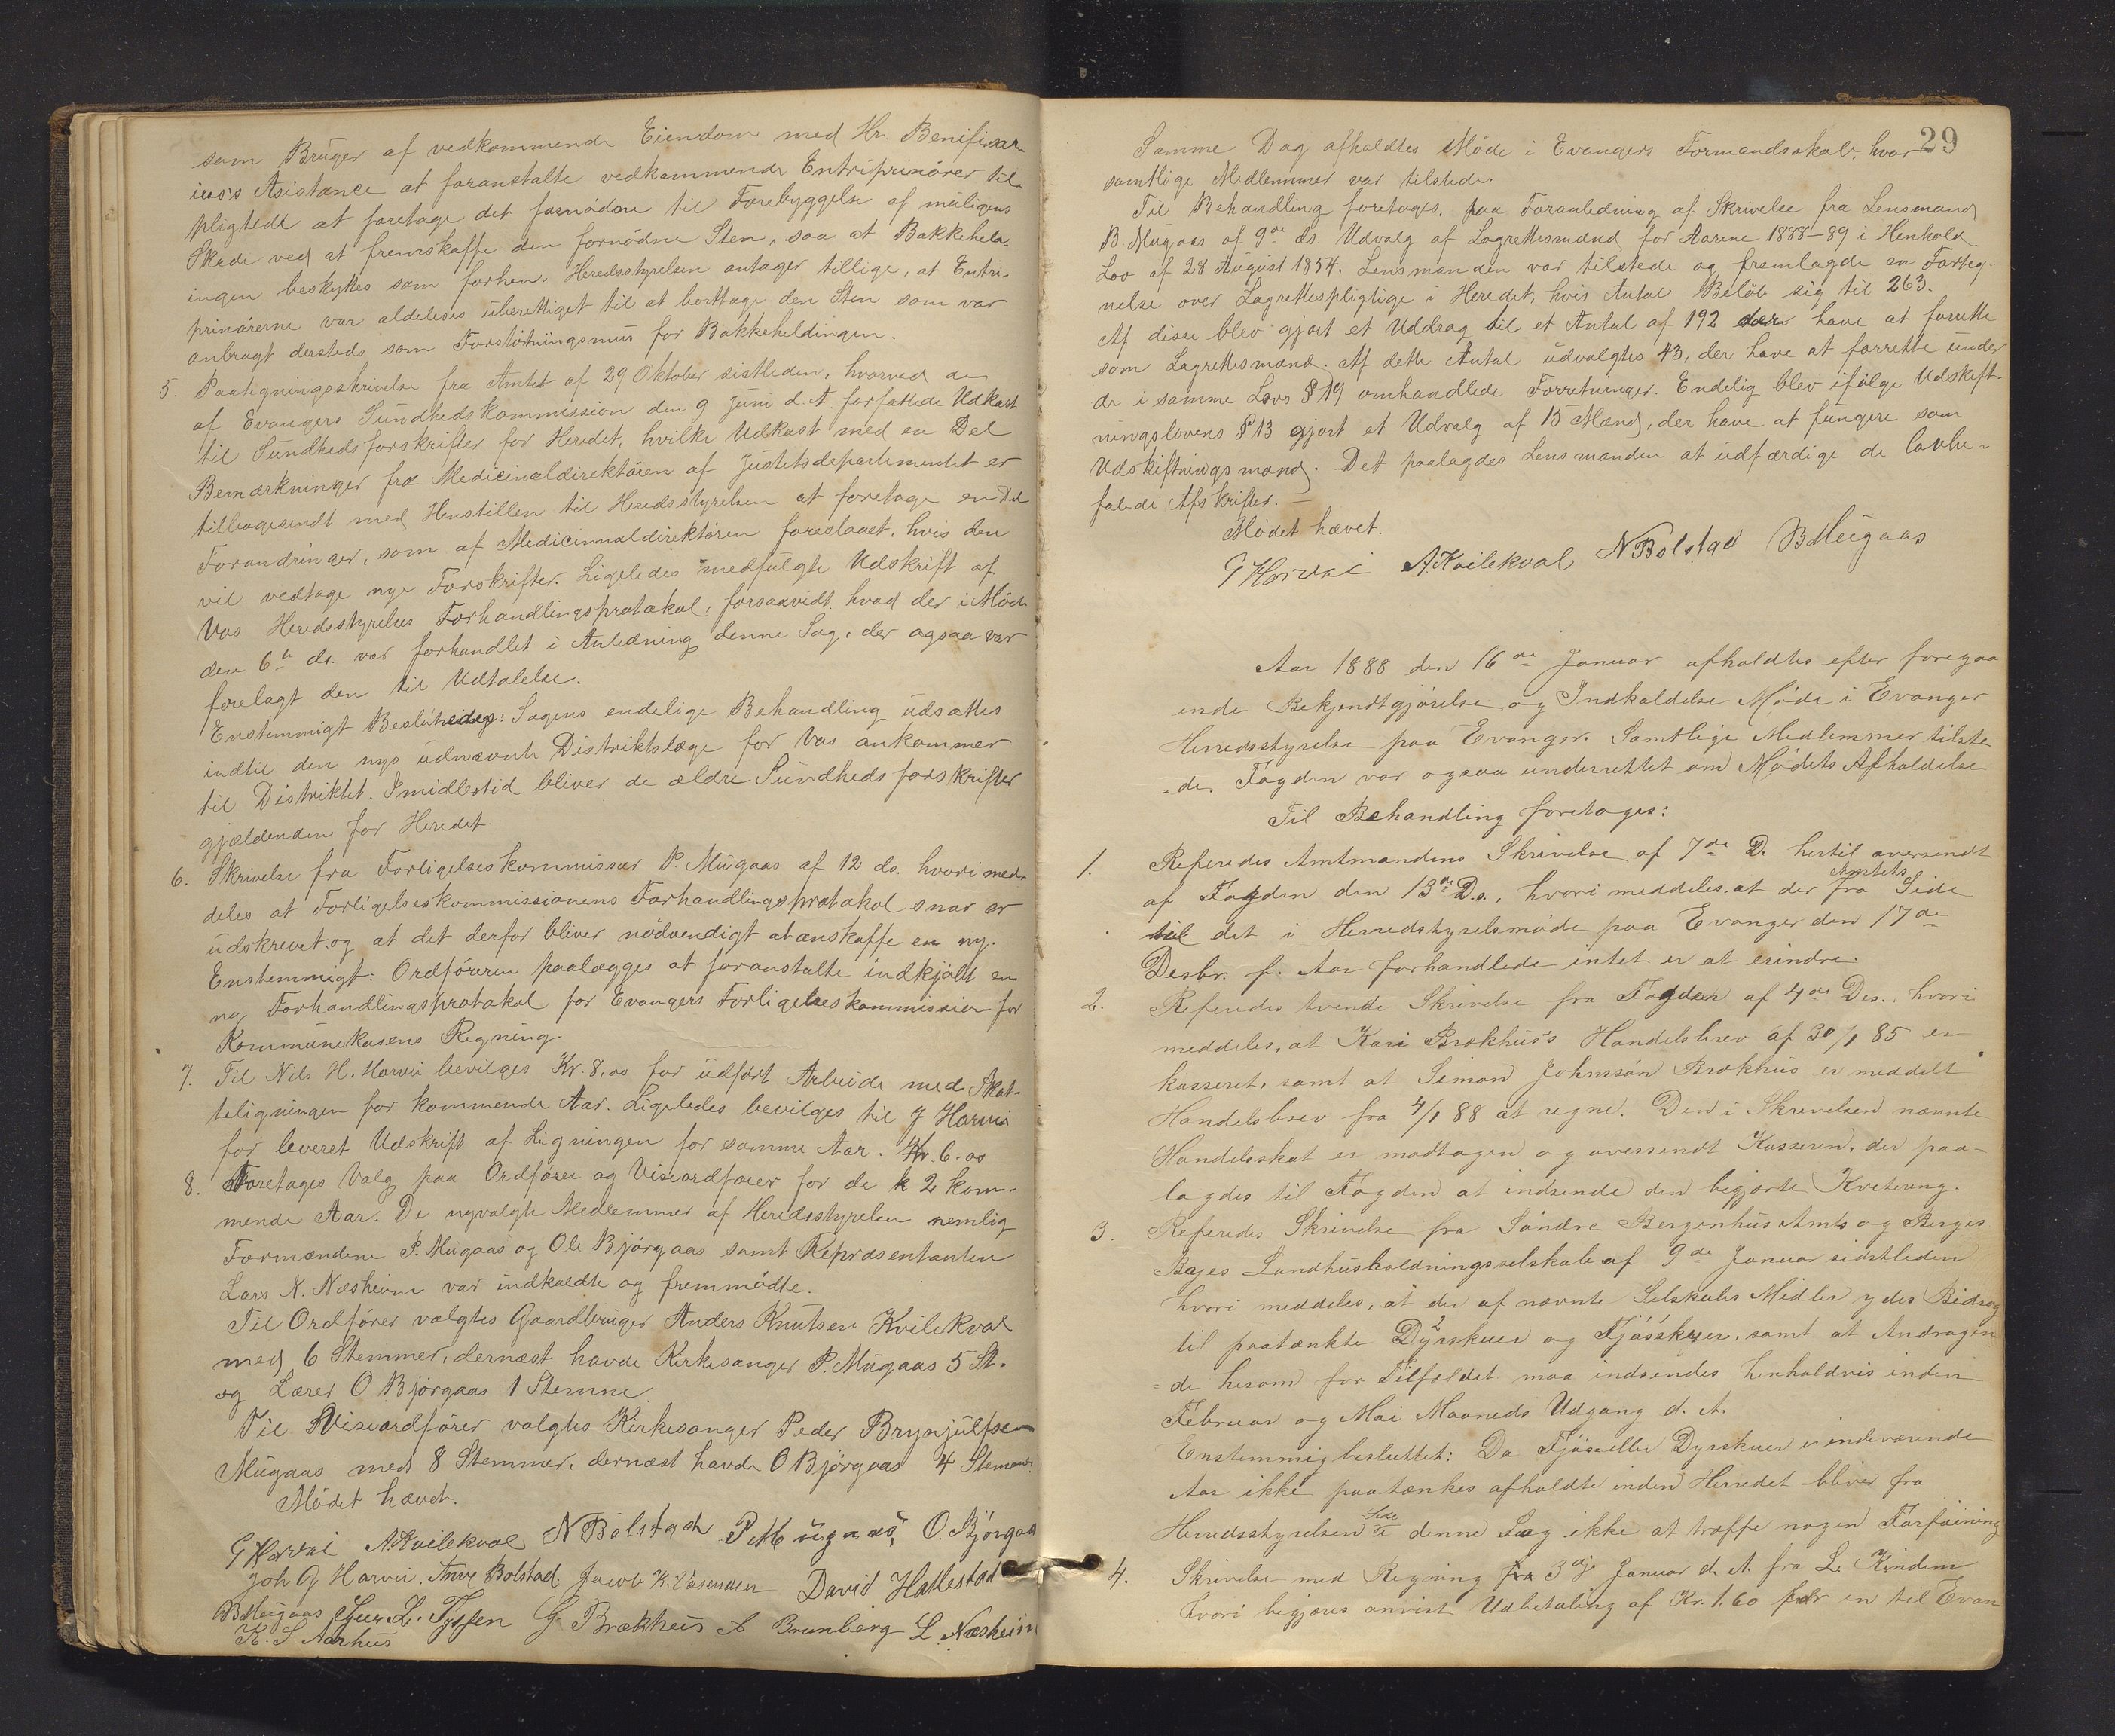 som Bruger af vedkommende Eiendom med Hr. Benifisar
ius's Asistance at foranstalte vedkommende Entriprinörer til-
pligtede at foretage det fornödne til Forebyggelse af muligens
Skade ved at fremskaffe den fornödne Sten, saa at Bakkeheld-
ingen beskyttes som forhen. Heredsstyrelsen antager tillige, at Entri-
prinörerne var aldeleses uberettiget til at borttage den Sten som var
anbragt dersteds som Forstötningsmur for Bakkeheldingen.
5. Paategningsskrivelse fra Amtet af 29 Oktober sistleden, hvorved de
af Evangers Sundhedskommission den 9 Juni d. A. forfattede Udkast
til Sundhedsforskrifter for Heredet, hvilke Udkast med en Del
Bemærkninger fra Medicinaldirektören af Justetsdepartementet er
tilbagesendt med Henstillen til Heredsstyrelsen at foretage en Del
Forandringer, som af Medicinmaldirektören foreslaaet, hvis den
vil vedtage nye Forskrifter. Ligeledes medfulgte Udskrift af
Vos Heredsstyrelses Forhandlingsprotokol, forsaavidt hvad der i Möde
den 6te ds. var forhandlet i Anledning denne Sag, der ogsaa var
forelagt den til Udtalelse.
Enstemmigt Besluttedes: Sagens endelige Behandling udsættes
indtil den nye udnævnte Distriktslæge for Vos ankommer
til Distriktet. Imidlestid bliver de ældre Sundhedsforskrifter
gjældenden for Heredet.
6. Skrivelse fra Forligelseskommissær P. Mugaas af 12 ds. hvori med-
deles at Forligelseskommissionens Forhandlingsprotokol snar er
udskrevet og at det derfor bliver nödvendigt at anskaffe en ny.
Enstemmigt: Ordföreren paalægges at foranstalte indkjöbt en
ny Forhandlingsprotokol for Evangers Forligelseskommission for
Kommunekasens Regning.
7. Til Nils H. Horvei bevilges Kr. 8,00 for udfört Arbeide med Skat-
teligningen for kommende Aar. Ligeledes bevilges til J Horvei
for leveret Udskrift af Ligningen for samme Aar. Kr. 6.00
8. Foretages Valg paa Ordförer og Viseordförer for de 2 kom-
mende Aar. De nyvalgte Medlemmer af Heredsstyrelsen nemlig
Formændene P. Mugaas og Ole Bjørgaas samt Repræsentanten
Lars N. Næsheim var indkaldte og fremmödte.
Til Ordförer valgtes Gaardbruger Anders Knutsen Kvilekval
med 6 Stemmer, dernæst havde Kirkesanger P. Mugaas 5 St.
og Lærer O Bjørgaas 1 Stemme
Til Viseordförer valgtes Kirkesanger Peder Brynjulfsen
Mugaas med 8 Stemmer, dernæst havde O Bjørgaas 4 Stemmer.
Mödet hævet.
G Horvei A Kvilekval N Bolstad P. Mugaas O. Bjørgaas
Joh G Horvei. Anve Bolstad Jacob K. Vasenden David Hallestad
B Mugaas Sjur L. Fyssen G Brækhus A Brunberg L. Næsheim
K. S Aarhus
29
Samme Dag afholdtes Möde i Evangers Formandsskab, hvor
samtlige Medlemmer var tilstede.
Til Behandling foretoges, paa Foranledning af Skrivelse fra Lensmand
B. Mugaas af 9de ds. Udvalg af Lagrettesmænd for Aarene 1888-89 i Henhold
Lov af 28 August 1854. Lensmanden var tilstede og fremlagde en Forteg-
nelse over Lagrettespligtige i Heredet, hvis Antal Belöb sig til 263.
Af disse blev gjort et Uddrag til et Antal af 192 der have at forrette
som Lagrettesmænd. Af dette Antal udvalgtes 43, der have at forrette under
de i samme Lovs § 19 omhandlede Forretninger. Endelig blev ifölge Udskift-
ningslovens § 13 gjort et Udvalg af 15 Mænd, der have at fungere som
Udskiftningsmænd. Det paalagdes Lensmanden at udfærdige de lovbe-
falede Afskrifter. —
Mödet hævet.
G Horvei A Kvilekval N Bolstad B Mugaas
Aar 1888 den 16de Januar afholdtes efter foregaa
ende Bekjendtgjörelse og Indkaldelse Möde i Evanger
Herredsstyrelse paa Evanger. Samtlige Medlemmer tilste
=de. Fogden var ogsaa underrettet om Mödets Afholdelse
Til Behandling foretoges:
1. Referedes Amtmandens Skrivelse af 7de D. hertil oversendt
af Fogden den 13de Ds., hvori meddeles at der fra Amtets Side
til det i Herredstyrelsmöde paa Evanger den 17de
Desbr. f. Aar forhandlede intet er at erindre.
2. Referedes tvende Skrivelse fra Fogden af 4de Ds., hvori
meddeles, at Kari Brækhus's Handelsbrev af 30/1 85 er
kasseret, samt at Simon Johnssön Brækhus er meddelt
Handelsbrev fra 4/1 88 at regne. Den i Skrivelsen nævnte
Handelsskat er modtagen og oversendt Kasseren, der paa-
lagdes til Fogden at indsende den begjærte Kvitering.
3. Referedes Skrivelse fra Söndre Bergenhus Amts og Berges
Byes Landhusholdningsselskab af 9de Januar sidstleden
hvori meddeles, at der af nævnte Selskabs Midler ydes Bidrag
til paatænkte Dyrskuer og Fjösskuer, samt at Andragen
=de herom for Tilfældet maa indsendes henholdvis inden
Februar og Mai Maaneds Udgang d. A.
Enstemmig besluttet: Da Fjös eller Dyrskuer i indeværende
Aar ikke paatænkes afholdte inden Herredet bliver fra
Herredsstyrelsen Side i denne Sag ikke at træffe nogen Forföining
4. Skrivelse med Regning fra 3die Januar d. A. fra L. Kindem
hvori begjæres anvist Udbetaling af Kr. 1.60 for en til Evan